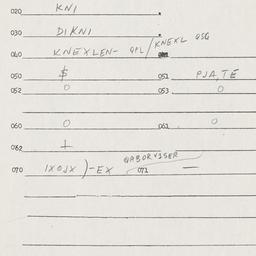 020 KNI
030 DIKNI
040 KNEXLEN- QPL/KNEXL QSG
050 $ 051 PJA, TE
052 0 053 0
060 0 061 0
062 +
070 1X0JX)-EX 071 —